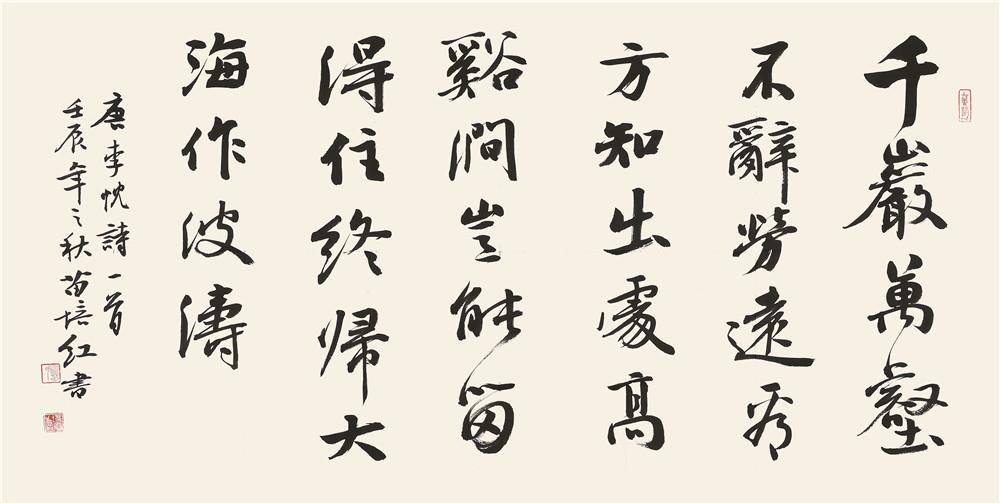 千巖萬壑
不辭勞遠看
方知出處高
谿澗豈能留
得住終歸大
海作波濤
唐李忱詩一首
壬辰年之秋苗培红書